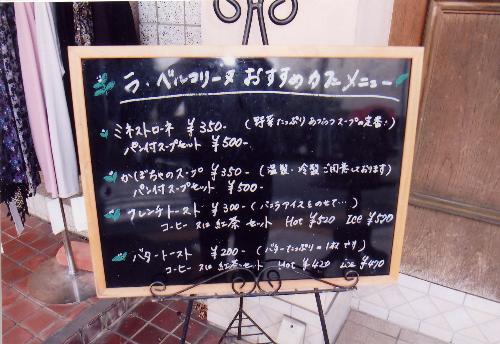 ラ・ベルコリーヌ おすすめカフェメニュー
ミネストローネ ¥350- (野菜たっぷりあつあつスープの定番!)
パン付スープセット ¥500-
かぼちゃのスープ ¥350- (温製・冷製ご用意しております)
パン付スープセット ¥500-
フレンチトースト ¥300- (バニラアイスをのせて…)
コーヒー 又は 紅茶 セット Hot ¥520 Ice ¥570
バタートースト ¥200- (バターたっぷり です)
コーヒー 又は 紅茶セット Hot ¥420 ice ¥470